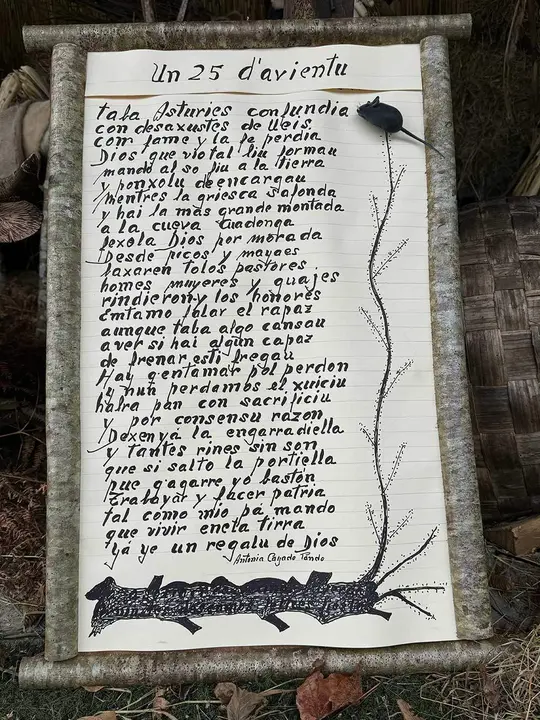 Un 25 d'avientu
taba Asturies confundia
con desaxustes de lleis
com fame y la fe perdia
Dios que vio tal liu formau
mandó al so fiu a la tierra
y ponxolu de encargau
mentres la griesca s'afonda
y hai la más grande montada
a la cueva Cuadonga
fexola Dios por morada
Desde picos y mayaes
baxaren tolos pastores
homes muyeres y guajes
rindieron-y los honores
Emtamo falar el rapaz
aunque taba algo cansau
a ver si hai algún capaz
de frenar esti fregau
Hay q'entamar pol perdon
y nun perdamos el xuiciu
habra pan con sacrificiu
y por consensu razon
Dexenya la engarradiella
y tantes rines sin son
que si salto la portiella
pue q'agarre yo bastón
Trabayar y facer patria
tal como mio pá mando
que vivir encta tirra
yá ye un regalu de Dios
Antonia